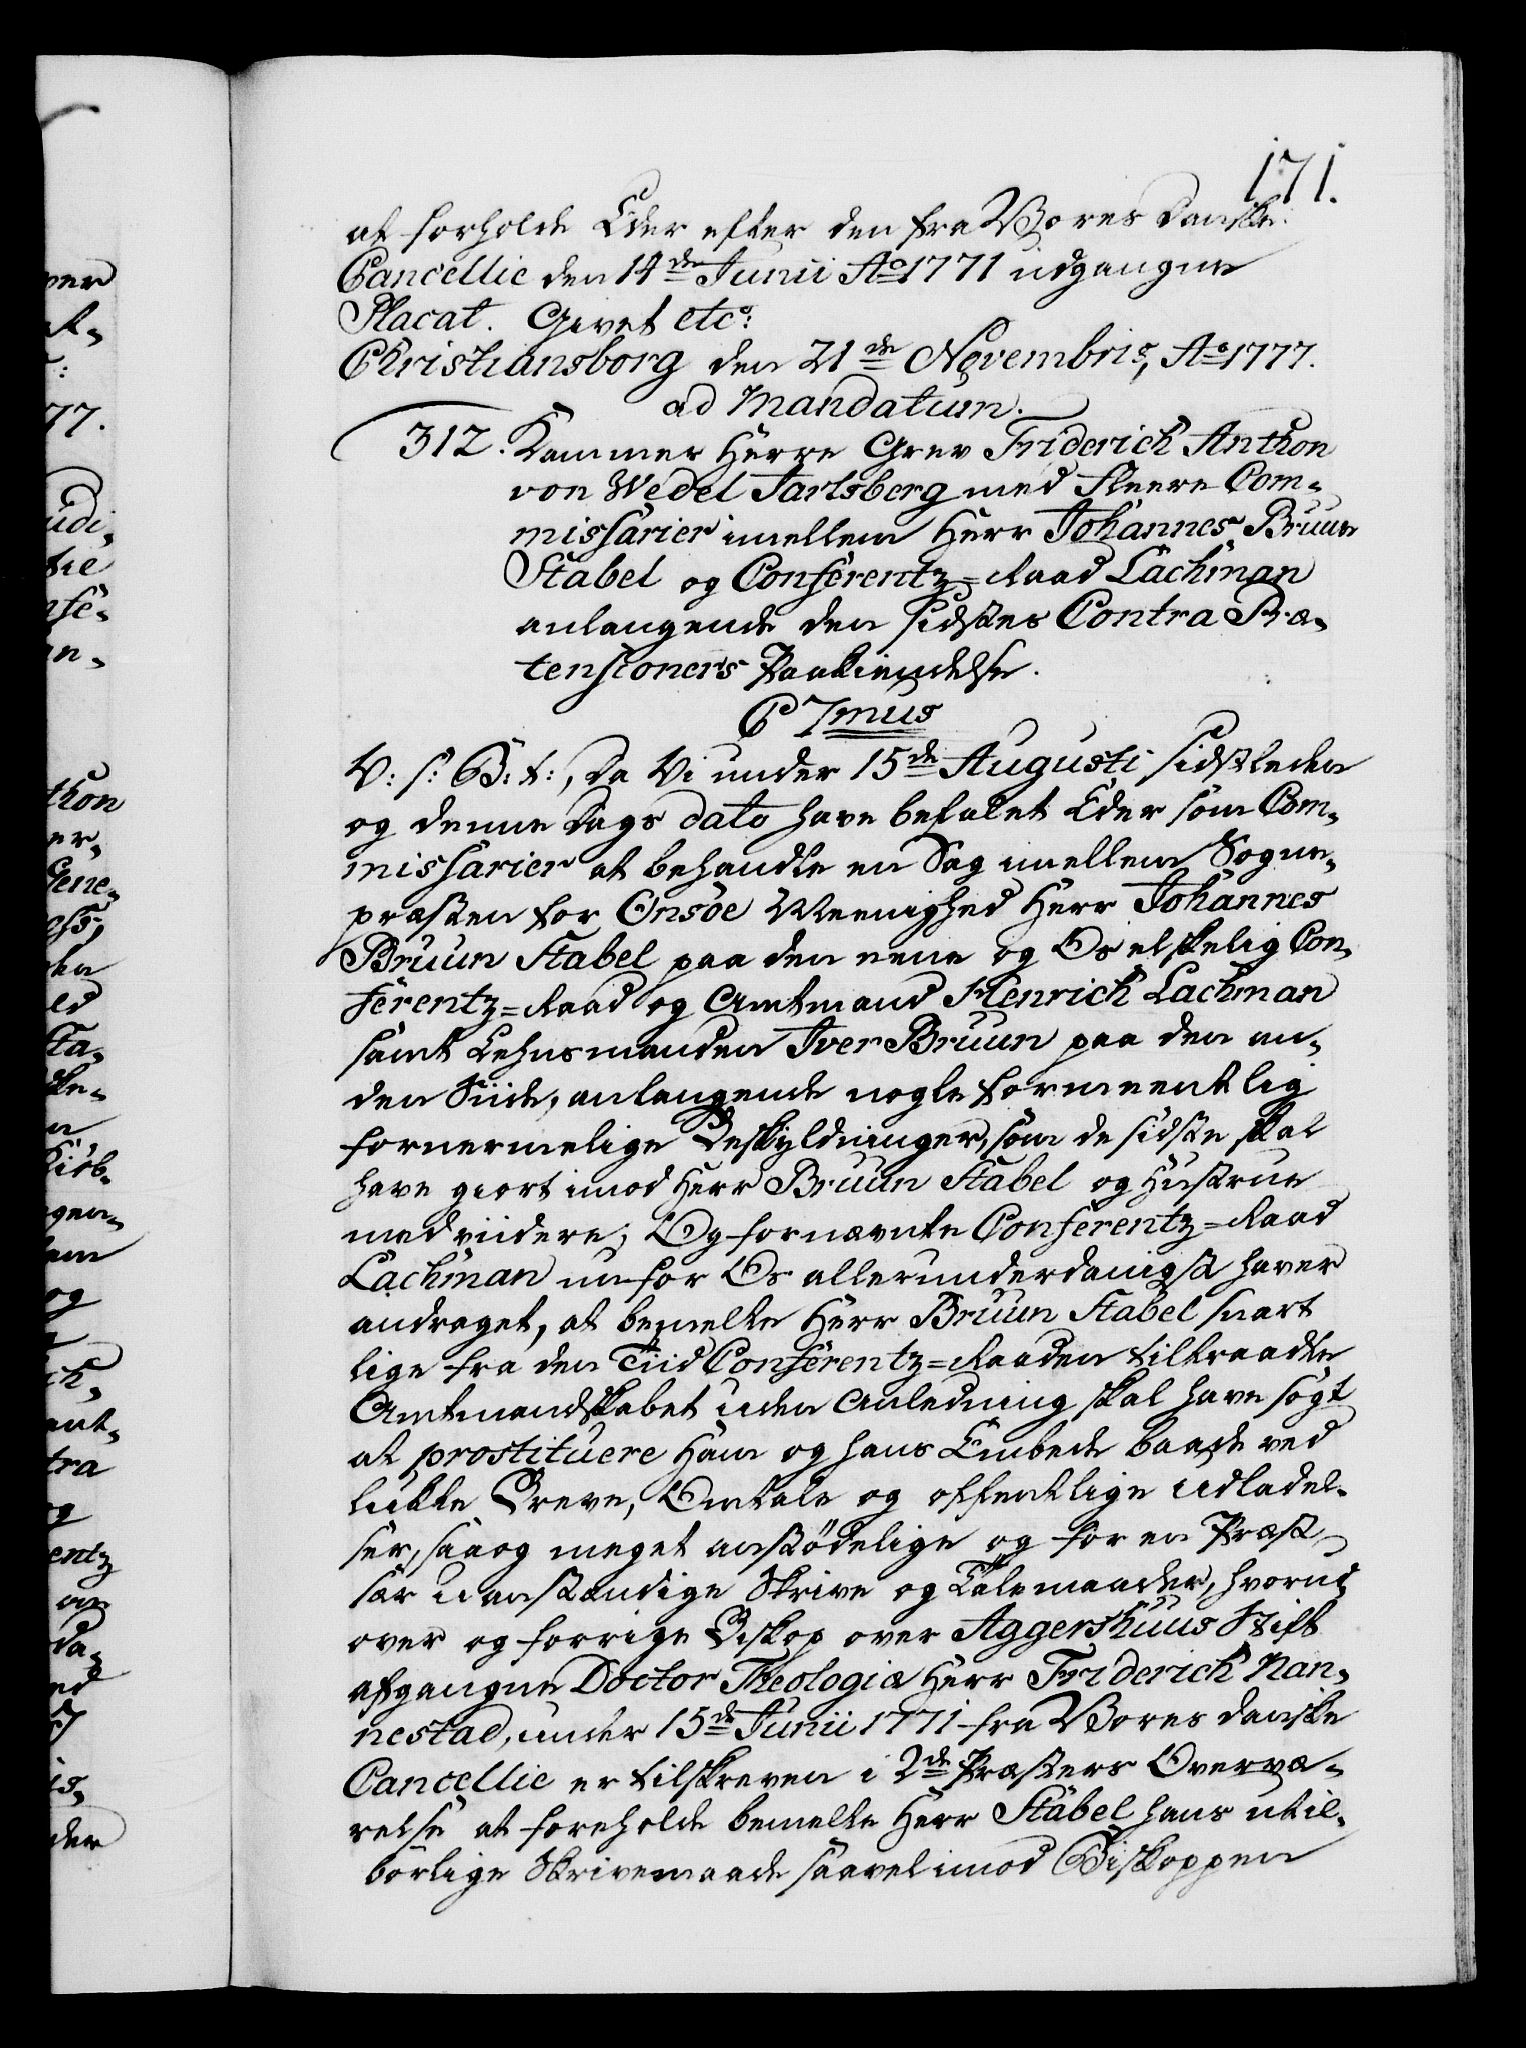 171.
at forholde Eder efter den fra Vores Danske
Cancellie den 14de Junii Ao 1771 udgangne
Placat. Givet etc:
Christiansborg den 21de Novembris, Ao 1777.
ad Mandatum.
312. Kammer Herre Grev Friderich Anthon
von Wedel Jarlsberg med fleere Com-
missarier imellem Herr Johannes Bruun
Stabel og Conferentz=Raad Lachman
anlangende den sidstes Contra Præ-
tensioners Paakiendelse.
C 7mus
V: s: G: t:, Da Vi under 15de Augusti sidstleden
og denne Dags dato have befalet Eder som Com-
missarier at behandle en Sag imellem Sogne-
præsten for Onsöe Meenighed Herr Johannes
Bruun Stabel paa den eene og Os elskelig Con-
ferentz=Raad og Amtmand Henrich Lachman
samt Lehnsmanden Iver Bruun paa den an-
den Siide, anlangende nogle formeentlig
fornermelige Beskyldninger, som de sidste skal
have giort imod Herr Bruun Stabel og Hustrue
med viidere; Og fornævnte Conferentz=Raad
Lachman nu for Os allerunderdanigst haver
andraget, at bemelte Herr Bruun Stabel snart
lige fra den Tiid Conferentz=Raaden tiltraadte
Amtmandskabet uden Anledning skal have søgt
at prostituere Ham og hans Embede baade ved
lukte Breve, Omtale og offentlige udladel-
ser, saa og meget anstödelige og for en Præst
sær uanstændige Skrive og Talemaader, hvorud-
over og forrige Biskop over Aggershuus Stift
afgangne Doctor Theologiæ Herr Friderich Nan-
nestad, under 15de Junii 1771 fra Vores danske
Cancellie er tilskreven i 2de Præsters Overvæ-
relse at foreholde bemelte Herr Stabel hans util-
börlige Skrivemaade saavel imod Biskoppen